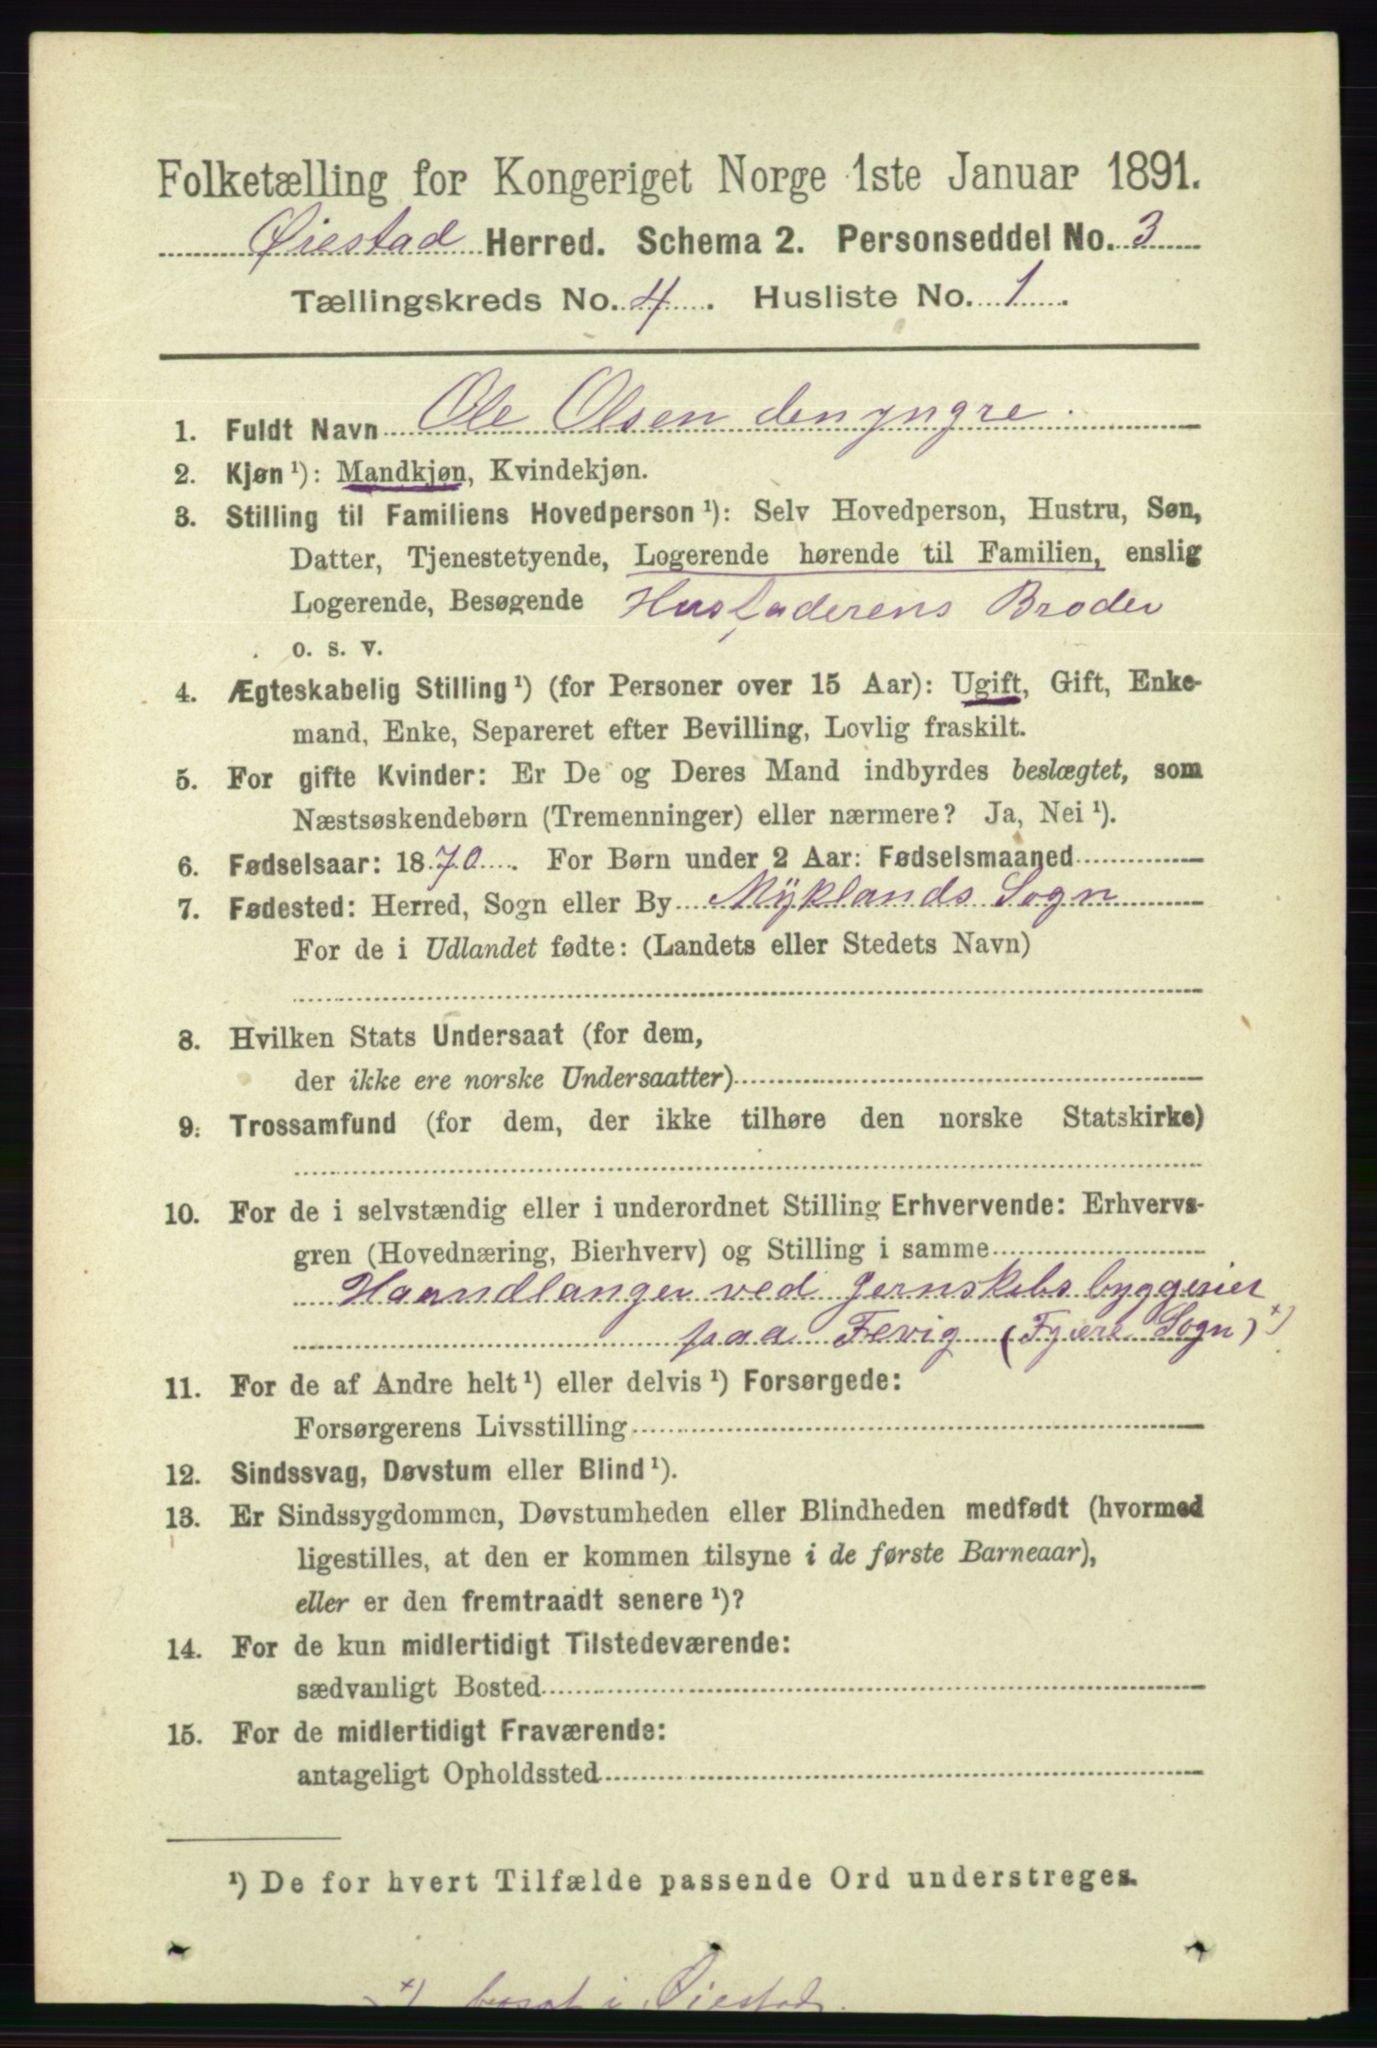 Folketælling for Kongeriget Norge 1ste Januar 1891.
Øiestad Herred. Schema 2. Personseddel No. 3
Tællingskreds No. 4. Husliste No. 1.
1. Fuldt Navn Ole Olsen den yngre.
2. Kjøn ¹): Mandkjøn, Kvindekjøn.
3. Stilling til Familiens Hovedperson ¹): Selv Hovedperson, Hustru, Søn,
Datter, Tjenestetyende, Logerende hørende til Familien, enslig
Logerende, Besøgende Husfaderens Broder
o. s. v.
4. Ægteskabelig Stilling ¹) (for Personer over 15 Aar): Ugift, Gift, Enke-
mand, Enke, Separeret efter Bevilling, Lovlig fraskilt.
5. For gifte Kvinder: Er De og Deres Mand indbyrdes beslægtet, som
Næstsøskendebørn (Tremenninger) eller nærmere? Ja, Nei ¹).
6. Fødselsaar: 1870. For Børn under 2 Aar: Fødselsmaaned
7. Fødested: Herred, Sogn eller By Mÿklands Sogn
For de i Udlandet fødte: (Landets eller Stedets Navn)
8. Hvilken Stats Undersaat (for dem,
der ikke ere norske Undersaatter)
9. Trossamfund (for dem, der ikke tilhøre den norske Statskirke)
10. For de i selvstændig eller i underordnet Stilling Erhvervende: Erhvervs-
gren (Hovednæring, Bierhverv) og Stilling i samme
Haandlanger ved Jernskibsbyggerier
paa Fevig (Fjære Sogn) ×)
11. For de af Andre helt ¹) eller delvis ¹) Forsørgede:
Forsørgerens Livsstilling
12. Sindssvag, Døvstum eller Blind ¹).
13. Er Sindssygdommen, Døvstumheden eller Blindheden medfødt (hvormed
ligestilles, at den er kommen tilsyne i de første Barneaar),
eller er den fremtraadt senere ¹)?
14. For de kun midlertidigt Tilstedeværende:
sædvanligt Bosted
15. For de midlertidigt Fraværende:
antageligt Opholdssted
¹) De for hvert Tilfælde passende Ord understreges.
×) bosat i Øiestad.